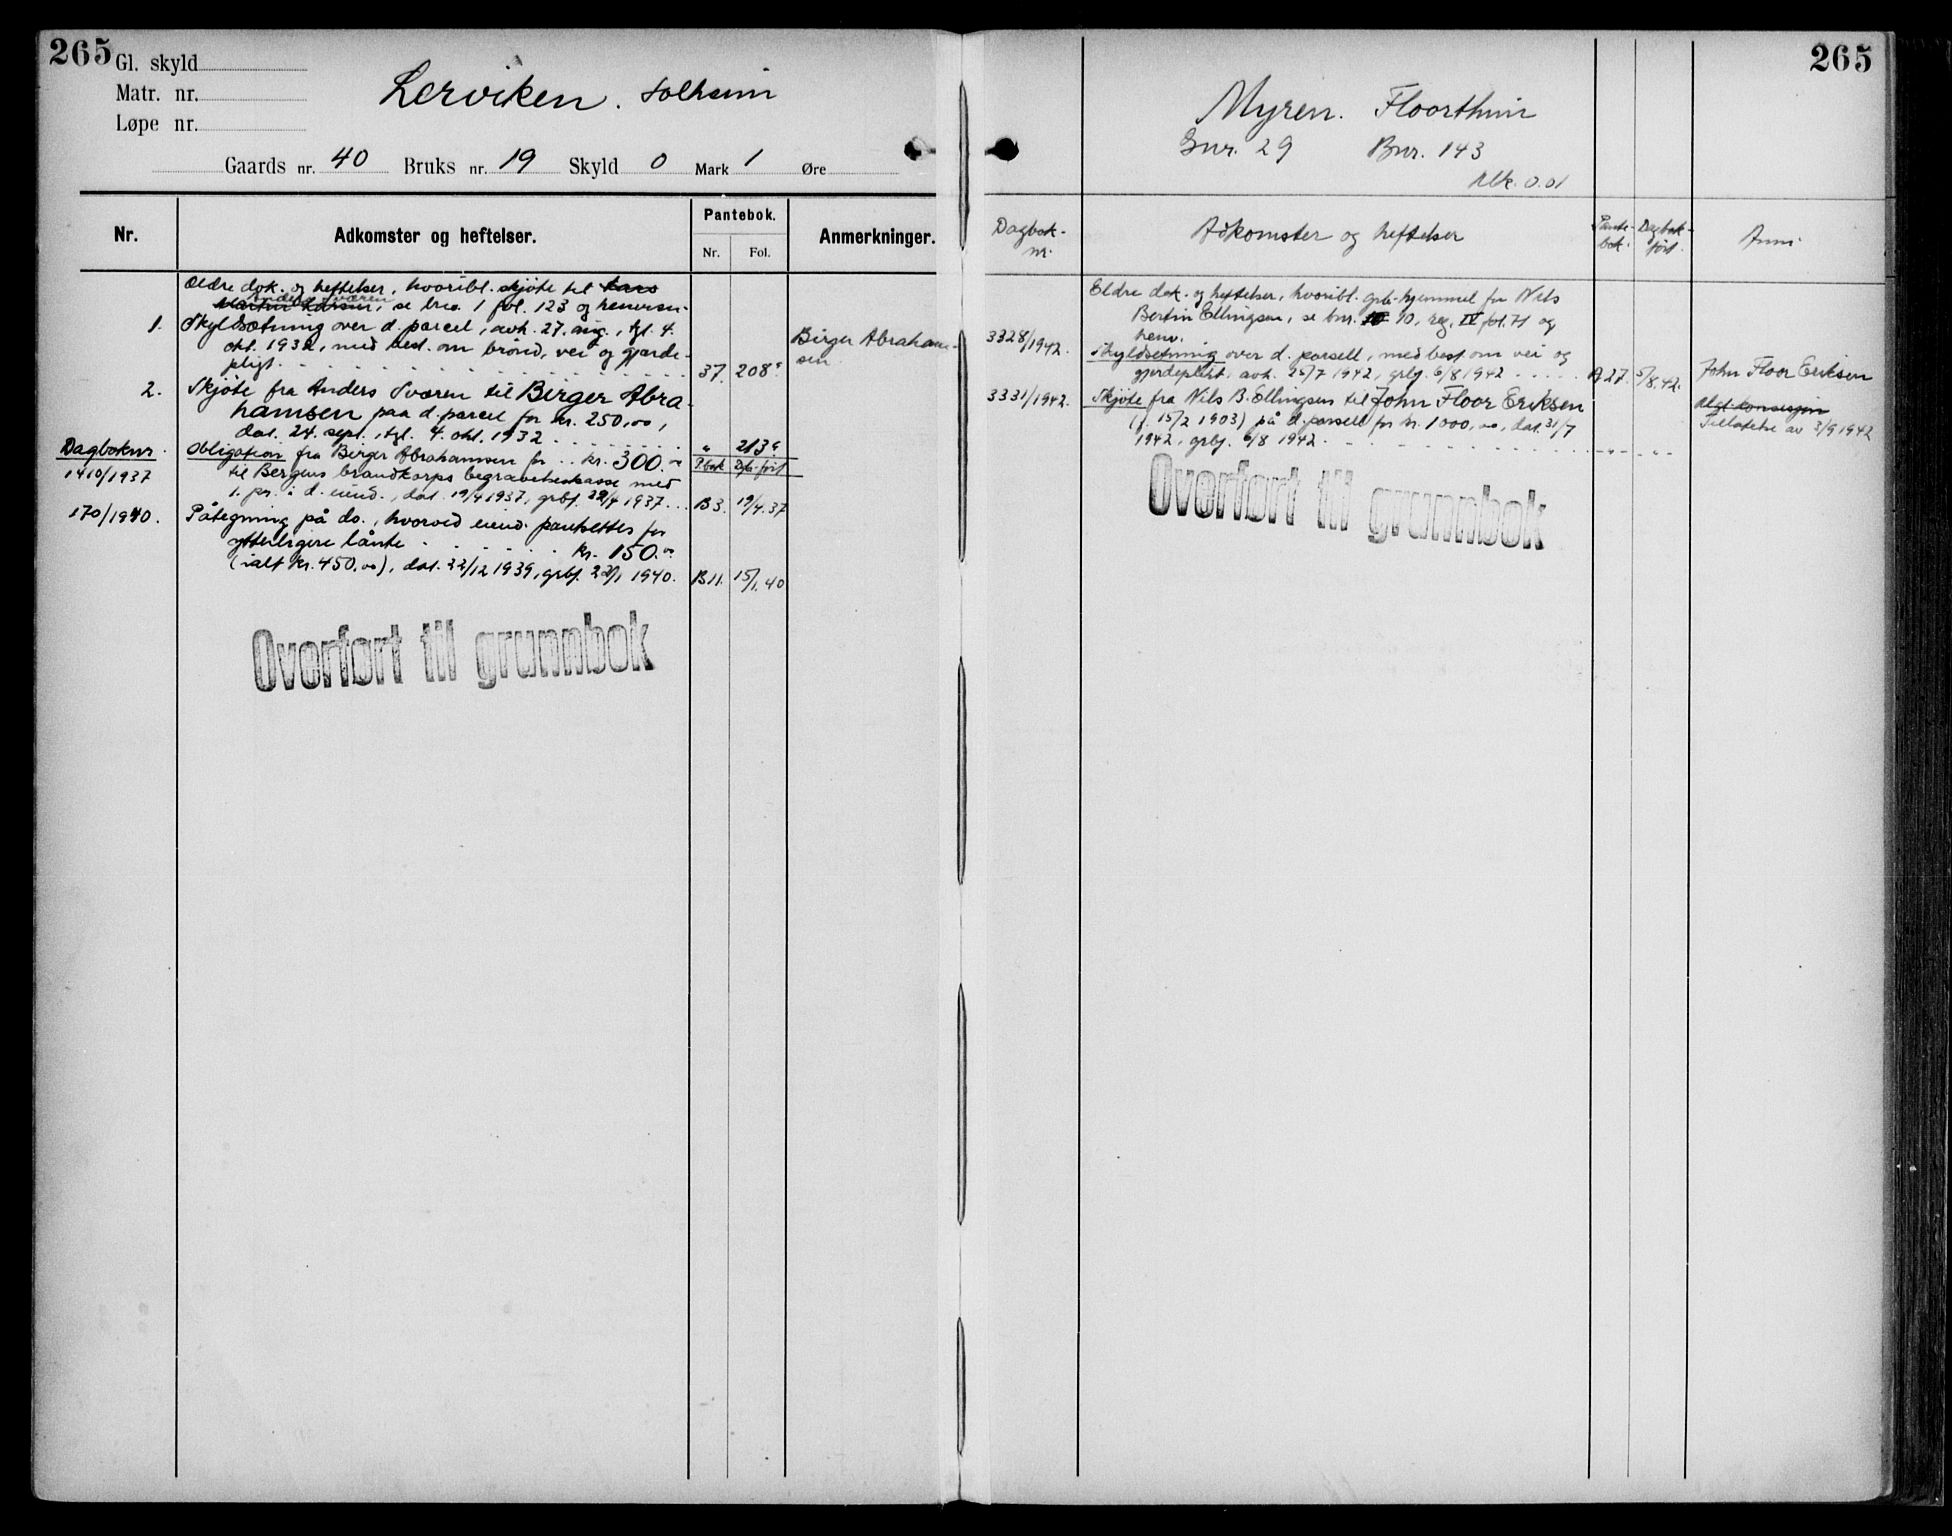 265
Gl. skyld
Matr. nr.
Løpe nr.
Lerviken. Solheim
Gaards nr. 40 Bruks nr. 19 Skyld 0 Mark 1 Øre
Nr.
Adkomster og heftelser.
Pantebok.
Nr. Fol.
Anmerkninger.
Ældre dok. og heftelser, hvoribl. skjøte til Lars
Anders Sværen
Martin Larsen, se brno. 1 fol. 123 og henvisn.
1. Skyldsætning over d. parcel, avh. 27. aug., tgl. 4.
okt. 1932, med best. om brønd, vei og gjærde-
pligt. 37. 208
Birger Abraham-
sen
2. Skjøte fra Anders Sværen til Birger Abra-
hamsen paa d. parcel for kr. 250,00,
dat. 24. sept., tgl. 4. okt. 1932 " 213
Dagboknr.
P.bok Dgb. ført
1410/1937
Obligation fra Birger Abrahamsen for kr. 300.00
til Bergens brandkorps begravelseskasse med
1. pr. i d. eiend., dat. 19/4 1937, grbf. 22/4 1937 B3. 19/4.37
170/1940. Påtegning på do., hvorved eiend. pantsettes for
ytterligere lånte kr. 150.00
(ialt kr. 450,00), dat. 22/12 1939, grbf. 22/1 1940. B11. 15/1.40
Overført til grunnbok
265
Myren. Floorthun
Gnr. 29 Bnr. 143
Mk. 0.01
Dagbok-
nr.
Adkomster og heftelser
Pante-
bok.
Dagbok-
ført.
Anm.
Eldre dok. og heftelser, hvoribl. grb. hjemmel for Nils
Bertin Ellingsen, se bnr. 10, reg. IV fol. 71 og
henv.
3328/1942. Skyldsetning over d. parsell, med best. om vei og
gjerdeplikt, avh. 25/7 1942, grbj. 6/8 1942 A 27. 5/8.42.
John Floor Eriksen
3331/1942. Skjøte fra Nils B. Ellingsen til John Floor Eriksen
(f. 15/2 1903) på d. parsell for kr. 1000,00, dat. 31/7
1942, grbj. 6/8 1942 - " - " - "
Utgt. konsesjon
Tillatelse av 3/9 1942
Overført til grunnbok